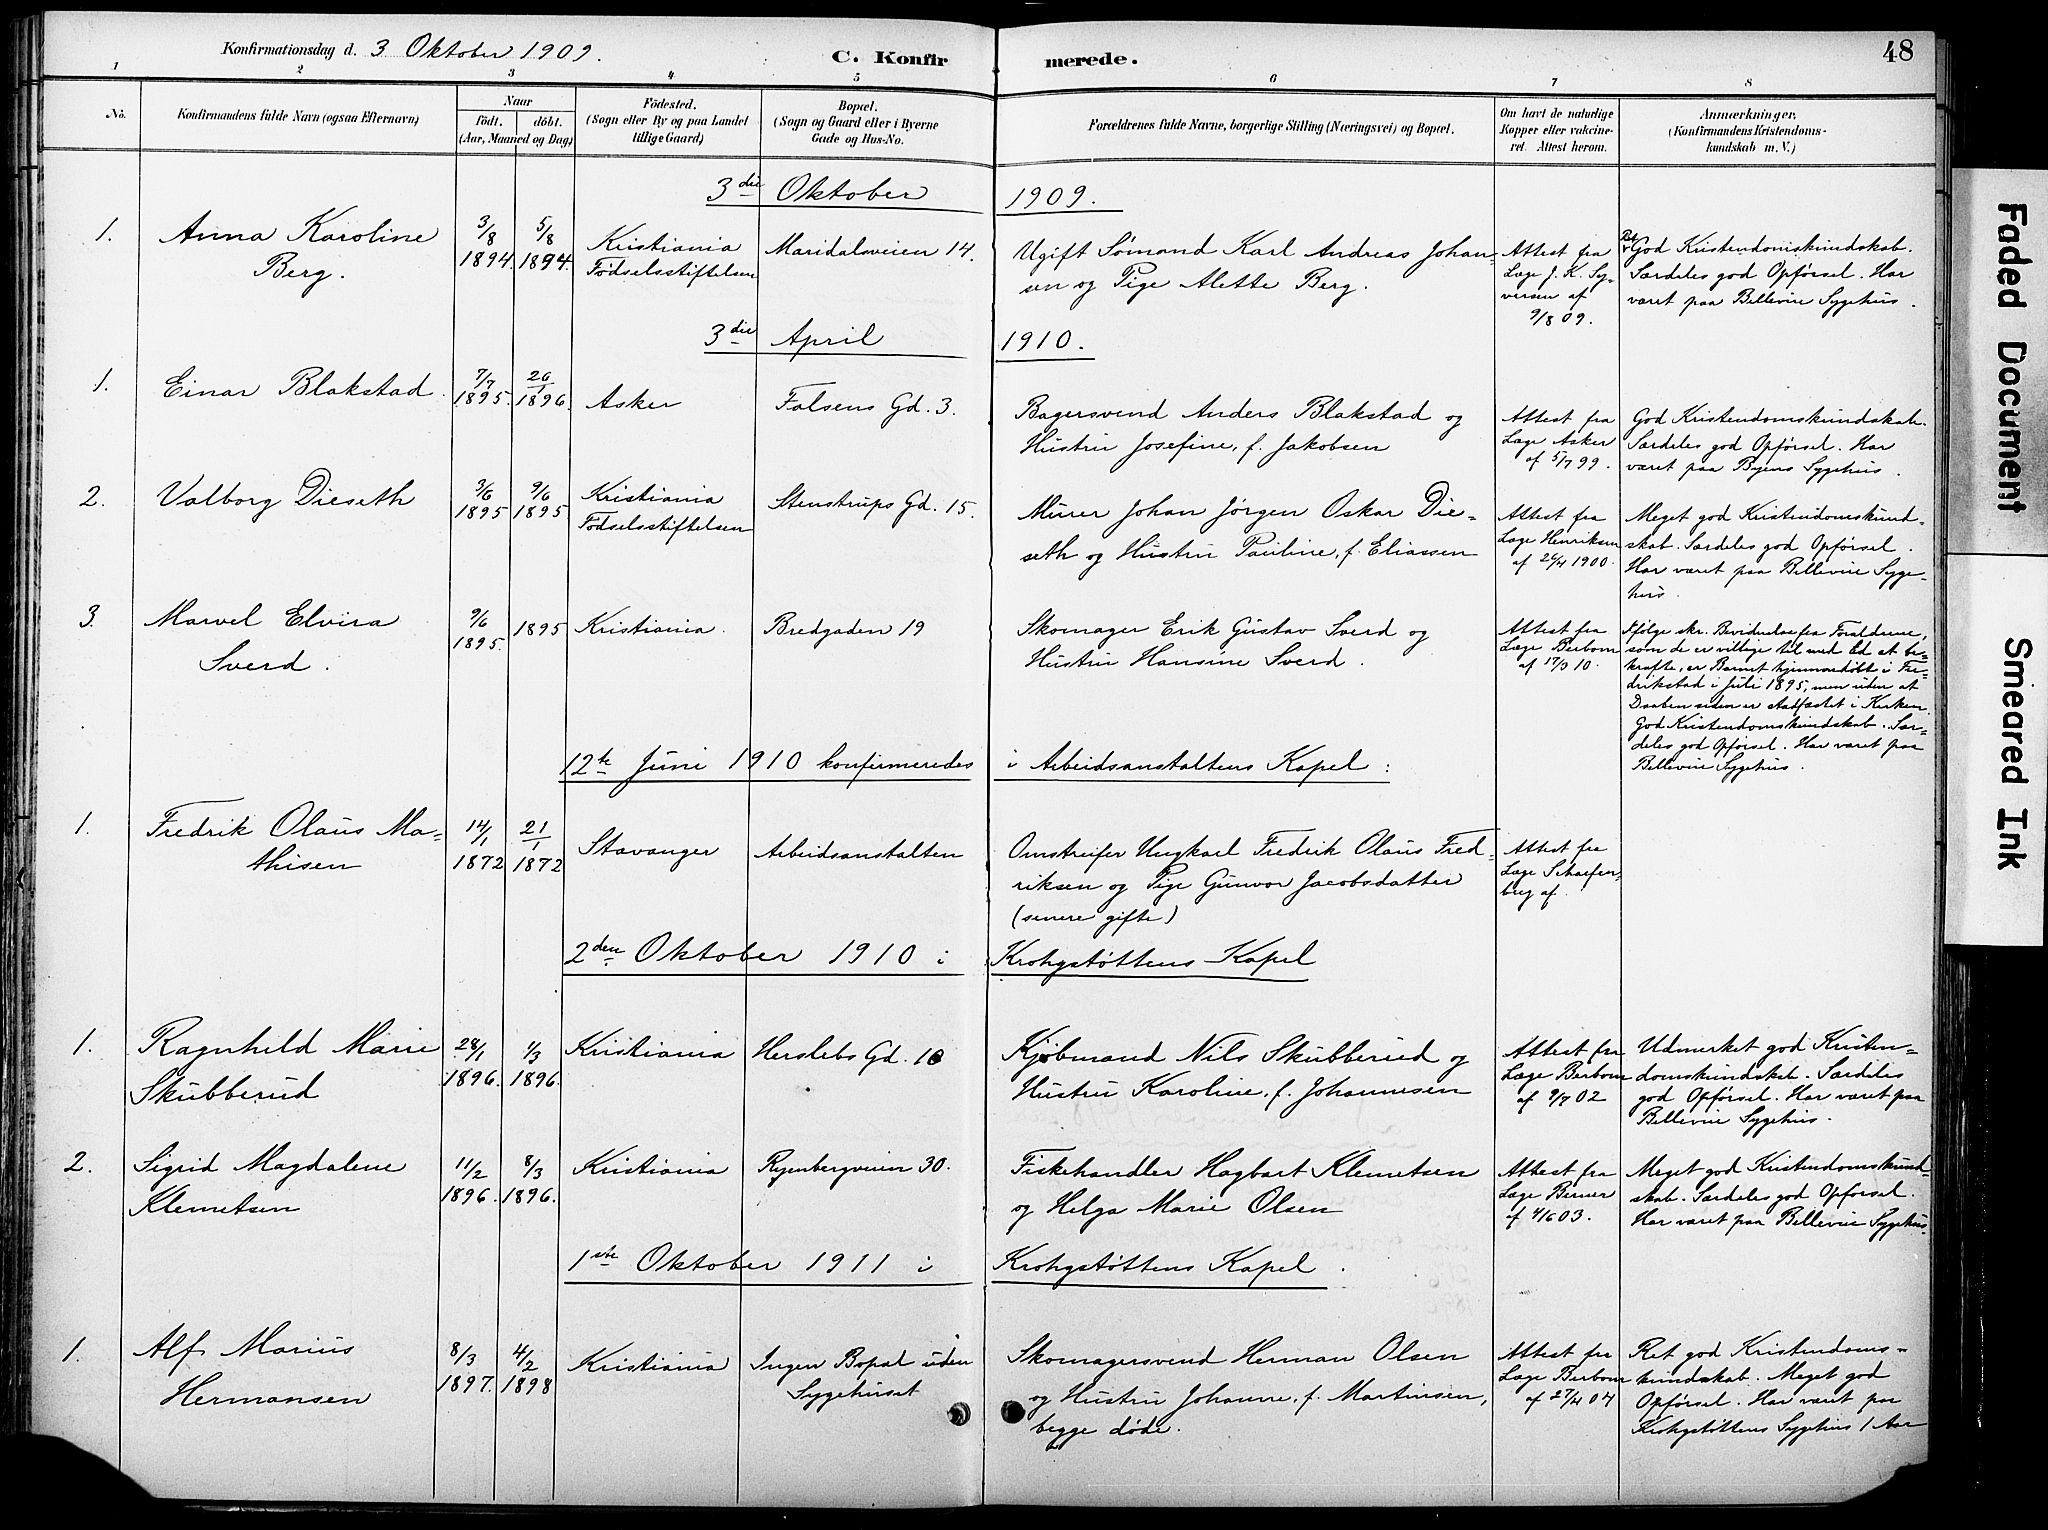 Konfirmationsdag d. 3 Oktober 1909.
C. Konfirmerede.
48
1 2 3 4 5 6 7 8
No.
Konfirmandens fulde Navn (ogsaa Efternavn)
Naar
födt. döbt.
(Aar, Maaned og Dag)
Födested.
(Sogn eller By og paa Landet
tillige Gaard)
Bopæl.
(Sogn og Gaard eller i Byerne
Gade og Hus-No.
Forældrenes fulde Navne, borgerlige Stilling (Næringsvei) og Bopæl.
Om havt de naturlige
Kopper eller vakcine-
ret. Attest herom.
Anmærkninger,
(Konfirmandens Kristendoms-
kundskab m. V.)
3die Oktober 1909.
1.
Anna Karoline
Berg.
3/8
1894.
5/8
1894.
Kristiania
Fødselsstiftelsen
Maridalsveien 14.
Ugift Sømand Karl Andreas Johan-
sen og Pige Alette Berg.
Attest fra
Læge J. K. Sy-
versen af
9/8 09.
God Kristendomskundskab.
Særdeles god Opførsel. Har
været paa Bellevue Sygehus.
3die April 1910.
1.
Einar Blakstad.
7/7
1895.
26/1
1896.
Asker
Falsens Gd. 3.
Bagersvend Anders Blakstad og
Hustru Josefine, f. Jakobsen
Attest fra
Læge Asker
af 5/7 99.
God Kristendomskundskab.
Særdeles god Opførsel. Har
været paa Byens Sygehus.
2.
Valborg Dieseth
3/6
1895
9/6
1895
Kristiania
Fødselsstiftelsen
Stenstrups Gd. 15.
Murer Johan Jørgen Oskar Die-
seth og Hustru Pauline, f. Eliassen
Attest fra
Læge Henriksen
af 26/4 1900.
Meget god Kristendomskund-
skab. Særdeles god Opførsel.
Har været paa Bellevue Syge-
hus.
3.
Marvel Elvira
Sverd.
9/6
1895.
1895
Kristiania.
Bredgaden 19
Skomager Erik Gustav Sverd og
Hustru Hansine Sverd.
Attest fra
Læge Berbom
af 17/3 10.
Ifølge skr. Bevidnelse fra Forældrene,
som de er villige til med Ed at be-
kræfte, er Barnet hjemmedøbt i Fre-
drikstad i Juli 1895, men uden at
Daaben siden er stadfæstet i Kirken.
God Kristendomskundskab. Sær-
deles god Opførsel. Har været paa
Bellevue Sygehus.
12te Juni 1910 konfirmeredes i Arbeidsanstaltens Kapel:
1.
Fredrik Olaus Ma-
thisen
14/1
1872
21/1
1872
Stavanger
Arbeidsanstalten
Omstreifer Ungkarl Fredrik Olaus Fred-
riksen og Pige Gunvor Jacobsdatter
(senere gifte)
Attest fra
Læge Scharfen-
berg af
2den Oktober 1910 i Krohgstøttens Kapel
1.
Ragnhild Marie
Skubberud
28/1
1896.
1/3
1896.
Kristiania
Herslebs Gd. 10
Kjøbmand Nils Skubberud og
Hustru Karoline, f. Johannesen
Attest fra
Læge Berbom
af 9/7 02
Udmerket god Kristen-
domskundskab. Særdeles
god Opførsel. Har været paa
Bellevue Sygehus.
2.
Sigrid Magdalene
Klemetsen
11/2
1896.
8/3
1896.
Kristiania
Ryenbergveien 30.
Fiskehandler Hagbart Klemetsen
og Helga Marie Olsen
Attest fra
Læge Berner
af 4/6 03.
Meget god Kristendomskund-
skab. Særdeles god Opførsel.
Har været paa Bellevue Sygehus
1ste Oktober 1911 i Krohgstøttens Kapel.
1.
Alf Marius
Hermansen
8/3
1897.
4/2
1898
Kristiania
Ingen Bopæl uden
Sygehuset
Skomagersvend Herman Olsen
og Hustru Johanne, f. Martinsen,
begge døde.
Attest fra
Læge Berbom
af 27/4 04
Ret god Kristendoms-
kundskab. Meget god
Opførsel. Har været paa
Krohgstøttens Sygehus 1 Aar
Faded Document
Smeared Ink